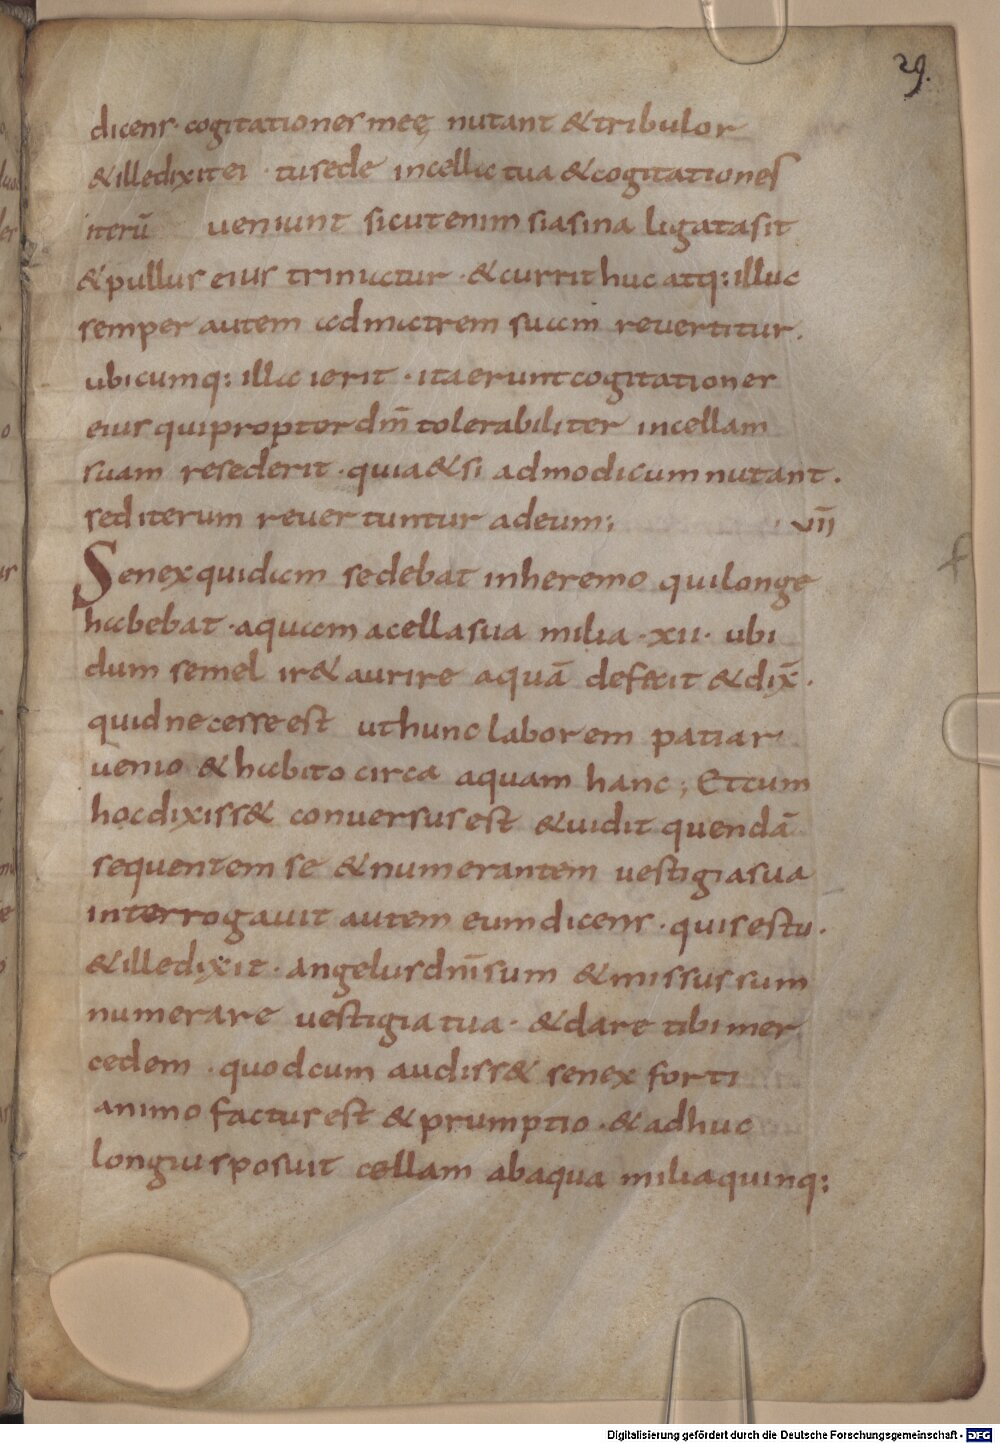 29.
dicens · cogitationes meę nutant & tribulor
& ille dixit ei · tu sede in cella tua & cogitationes
iterū ueniunt sicut enim si asina ligata sit
& pullus eius trinatur · & currit huc atq: illuc
semper autem ad matrem suam reuertitur.
ubicumq: illa ierit · ita erunt cogitationes
eius qui propter dm̄ tolerabiliter in cellam
suam resederit · quia & si ad modicum nutant.
sed iterum reuertuntur ad eum; VII
Senex quidam sedebat in heremo qui longe
habebat · aquam a cella sua milia · xii · ubi
dum semel ir& aurire aquā defecit & dix̄.
quid necesse est ut hunc laborem patiar
uenio & habito circa aquam hanc; Et cum
hoc dixiss& conuersus est & uidit quendā
sequentem se & numerantem uestigia sua
interrogauit autem eum dicens · quis es tu.
& ille dixit · angelus dn̄i sum & missus sum
numerare uestigia tua · & dare tibi mer
cedem · quod cum audiss& senex forti
animo factus est & prumptio · & adhuc
longius posuit cellam ab aqua milia quinq:
Digitalisierung gefördert durch die Deutsche Forschungsgemeinschaft - DFG